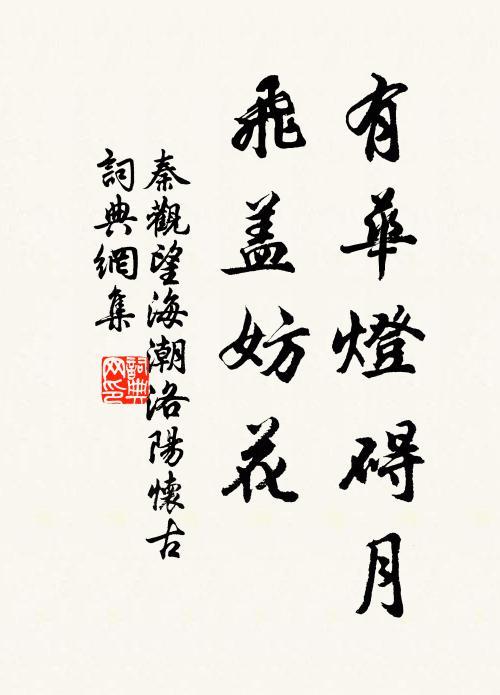 有華燈碍月
飛盖妨花
秦觀望海潮洛陽懷古
詞典網集
詞典
网印